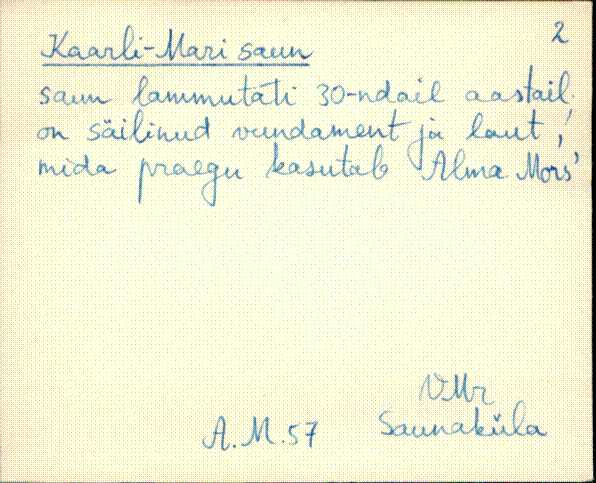 2
Kaarli-Mari saun
saun lammutati 30-ndail aastail,
on säilinud vundament ja laut,
mida praegu kasutab Alma Mors'
VMr
A.M. 57 Saunaküla